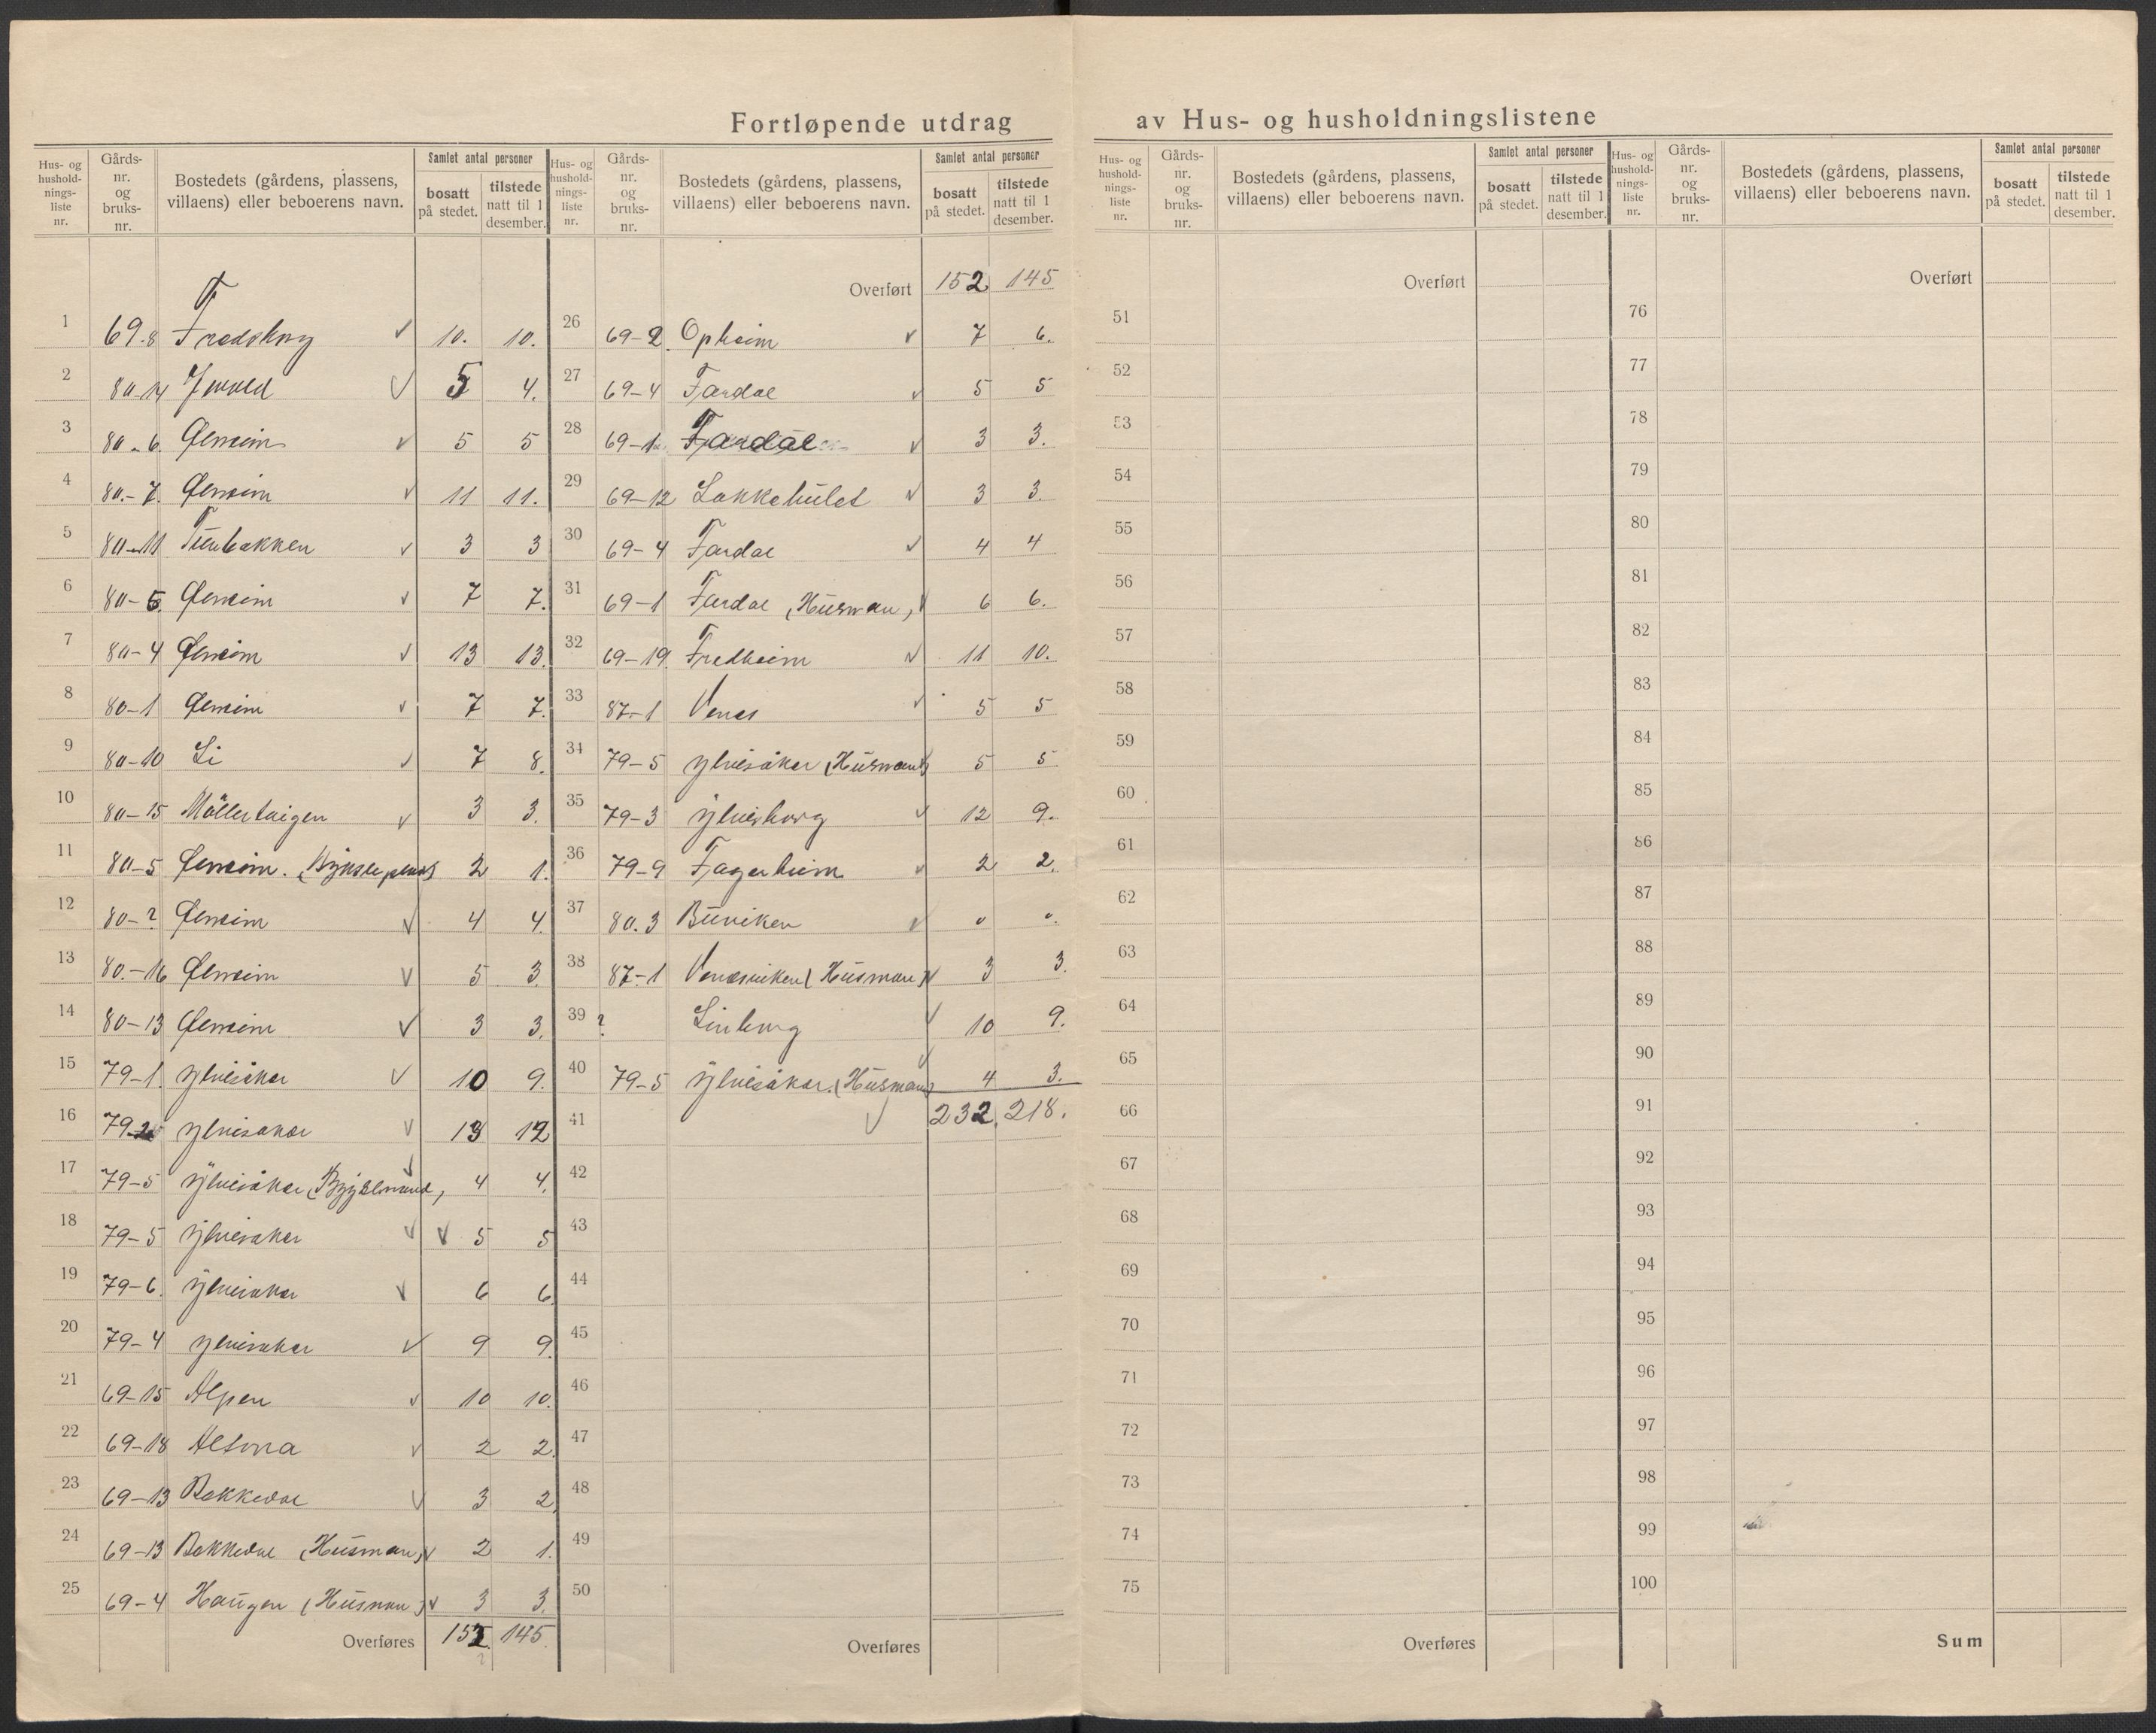 Fortløpende utdrag av Hus- og husholdningslistene
Hus- og hushold-nings-liste nr. | Gårds-nr. og bruks-nr. | Bostedets (gårdens, plassens, villaens) eller beboerens navn. | Samlet antal personer | bosatt på stedet. | tilstede natt til 1 desember.
1 69.8 Fredsborg 10. 10.
2 80-14 5 4.
3 80-6. Ølmeim 5 5
4 80.-7. Ølmeim 11 11.
5 80-11 Tunbakken 3 3
6 80-5. Ølmeim 7 7.
7 80-4 Ølmeim 13 13.
8 80-1 Ølmeim 7 7.
9 80-10 Li 7 8.
10 80-15 Möllerteigen 3 3.
11 80-5 Ølmeim. 2 1.
12 80-2 Ølmeim 4 4.
13 80.-16 Ølmeim 5 3.
14 80-13 Ølmeim 3 3.
15 79-1. Ylvisåker 10 9.
16 79-2 Ylvisaker 13 12
17 79-5 Ylvisåker 4 4.
18 79-5 Ylvisaker 5 5
19 79-6. Ylvisaker 6 6.
20 79-4 Ylvisaker 9 9.
21 69-15 Alpen 10 10.
22 69-18 Altona 2 2.
23 69-13 Bakkedal 3 2
24 69-13 Bakkedal (Husman) 2 1.
25 69-4 Haugen (Husman) 3 3.
Overføres 152. 145.
Hus- og hushold-nings-liste nr. | Gårds-nr. og bruks-nr. | Bostedets (gårdens, plassens, villaens) eller beboerens navn. | Samlet antal personer | bosatt på stedet. | tilstede natt til 1 desember.
Overført 152 145
26 69-2. Opheim 7 6.
27 69-4 Fardal 5 5
28 69-1 Fardal 3 3.
29 69-12 Lokkehulet 3 3.
30 69-4 Fardal 4 4
31 69-1 Fardal (Husman) 6 6.
32 69-19. Fredheim 11 10.
33 87-1 Venes 5 5
34 79-5 Ylvisåker (Husman) 5 5
35 79-3 Ylvisborg 12 9.
36 79-9 Fagerheim 2 2.
37 80.3 Buviken 0 0.
38 87-1 Venesviken (Husman) 3 3.
39 ? Linborg 10 9.
40 79-5 Ylvisåker. (Husman) 4 3.
41 232. 218.
42
43
44
45
46
47
48
49
50
Overføres
Hus- og hushold-nings-liste nr. | Gårds-nr. og bruks-nr. | Bostedets (gårdens, plassens, villaens) eller beboerens navn. | Samlet antal personer | bosatt på stedet. | tilstede natt til 1 desember.
Overført
51
52
53
54
55
56
57
58
59
60
61
62
63
64
65
66
67
68
69
70
71
72
73
74
75
Overføres
Hus- og hushold-nings-liste nr. | Gårds-nr. og bruks-nr. | Bostedets (gårdens, plassens, villaens) eller beboerens navn. | Samlet antal personer | bosatt på stedet. | tilstede natt til 1 desember.
Overført
76
77
78
79
80
81
82
83
84
85
86
87
88
89
90
91
92
93
94
95
96
97
98
99
100
Sum